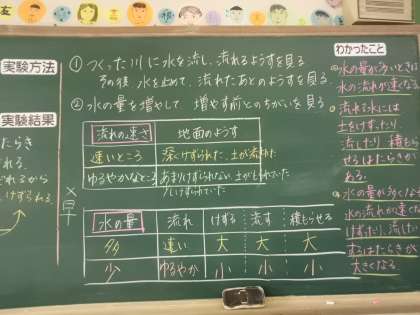 実験方法
① つくった川に水を流し、流れるようすを見る
その後 水を止めて、流れたあとのようすを見る。
② 水の量を増やして 増やす前とのちがいを見る
実験結果
流れの速さ 地面のようす
速いところ 深くけずられた、土が流れた
ゆるやかなところ あまりけずられない、土がしずんでいた
水の量 流れ けずる 流す 積もらせる
多 速い 大 大 大
少 ゆるやか 小 小 小
わかったこと
水の量が多いときは
水の流れが速くなる
流れる水には
土をけずったり、
流したり 積もら
せるはたらきが
ある。
水の量が多くなると
水の流れが速くなり
けずったり、流したり
するはたらきが
大きくなる